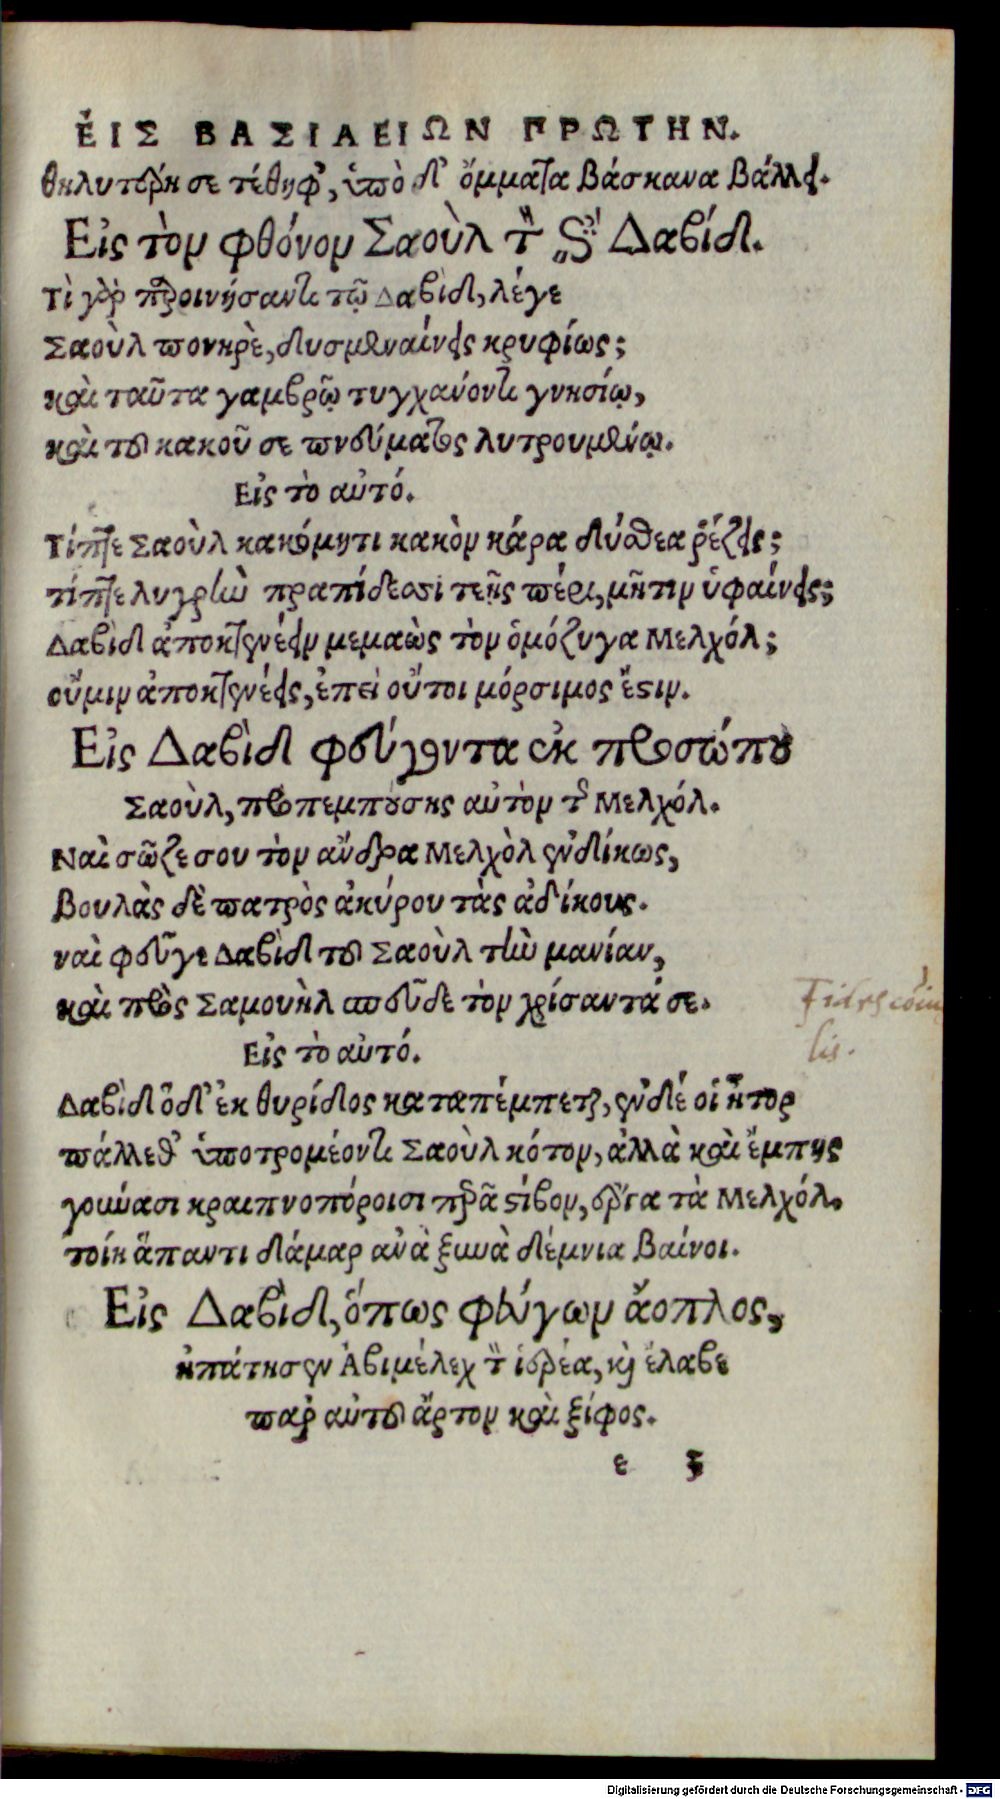 ἘΙΣ ΒΑΣΙΛΕΙΩΝ ΠΡΩΤΗΝ.
θηλυτέρη σε τέθηφ', ὑπὸ δ' ὄμματα βάσκανα βάλλει.
Εἰς τὸν φθόνον Σαοὺλ τὸν Δαβίδ.
Τὶ γὰρ παροινήσαντι τῷ Δαβὶδ, λέγε
Σαοὺλ πονηρὲ, δυσμεναίνεις κρυφίως;
καὶ ταῦτα γαμβρῷ τυγχανόντι γνησίῳ,
καὶ τοῦ κακοῦ σε πνεύματος λυτρουμένῳ.
Εἰς τὸ αὐτό.
Τίπτε Σαοὺλ κακόμητι κακὸν κάρα δύσθεα ῥέζεις;
τίπτε λυγρὴν πραπίδεσσι τεῇς πέρι, μῆτιν ὑφαίνεις;
Δαβὶδ ἀποκτενέειν μεμαὼς τὸν ὁμόζυγα Μελχόλ;
οὔμιν ἀποκτενέεις, ἐπεὶ οὔτοι μόρσιμος ἔστιν.
Εἰς Δαβὶδ φεύγοντα ἐκ προσώπου
Σαοὺλ, προπεμπούσης αὐτὸν τῆς Μελχόλ.
Ναὶ σῶζε σου τὸν ἄνδρα Μελχὸλ ἐνδίκως,
βουλὰς δὲ πατρὸς ἀκύρου τὰς ἀδίκους.
ναὶ φεῦγε Δαβὶδ τοῦ Σαοὺλ τὴν μανίαν,
καὶ πρὸς Σαμουὴλ σπεῦδε τὸν χρίσαντά σε.
Εἰς τὸ αὐτό.
Δαβὶδ ὅδ' ἐκ θυρίδος καταπέμπεται, ἐνδέ οἱ ἦτορ
πάλλεθ' ὑποτρομέοντι Σαοὺλ κότον, ἀλλὰ καὶ ἔμπης
γούνασι κραιπνοπόροισι στίβον, ἔργα τὰ Μελχόλ.
τοίη ἅπαντι δάμαρ ἀνὰ ξυνὰ δέμνια βαίνοι.
Εἰς Δαβὶδ, ὅπως φεύγων ἄοπλος,
ἠπάτησεν Ἀβιμέλεχ τὸν ἱερέα, καὶ ἔλαβε
παρ' αὐτοῦ ἄρτον καὶ ξίφος.
ε
Digitalisierung gefördert durch die Deutsche Forschungsgemeinschaft - DFG